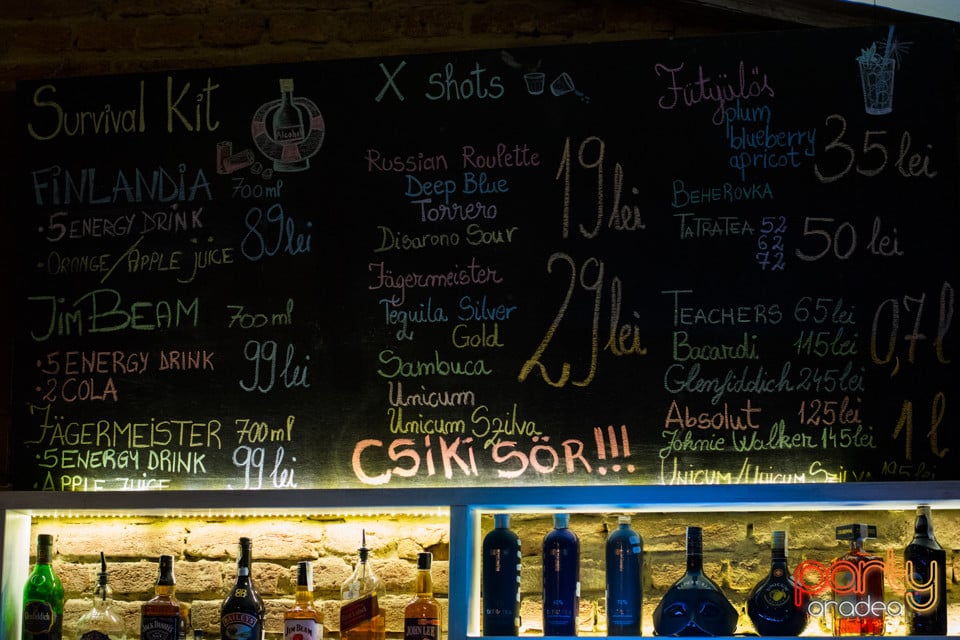 Survival Kit
Alcohol
FINLANDIA 700 ml
• 5 ENERGY DRINK
89 lei
• ORANGE / APPLE JUICE
JIM BEAM 700 ml
• 5 ENERGY DRINK
99 lei
• 2 COLA
JÄGERMEISTER 700 ml
• 5 ENERGY DRINK
99 lei
APPLE JUICE
X shots
Russian Roulette
Deep Blue
Torrero
Disarono Sour
19 lei
Jägermeister
Tequila Silver
& Gold
Sambuca
Unicum
Unicum Szilva
29 lei
CSIKI SÖR!!!
Fütyülős
plum
blueberry
apricot
35 lei
BEHEROVKA
TATRATEA 52
62
72
50 lei
TEACHERS 65 lei
Bacardi 145 lei
0,7 l
Glenfiddich 245 lei
Absolut 125 lei
Johnie Walker 145 lei
1 l
UNICUM/UNICUM SZILVA 195 lei
Glenfiddich
BAILEYS
JACK DANIEL'S
JIM BEAM
JOHN LEE
party
oradea